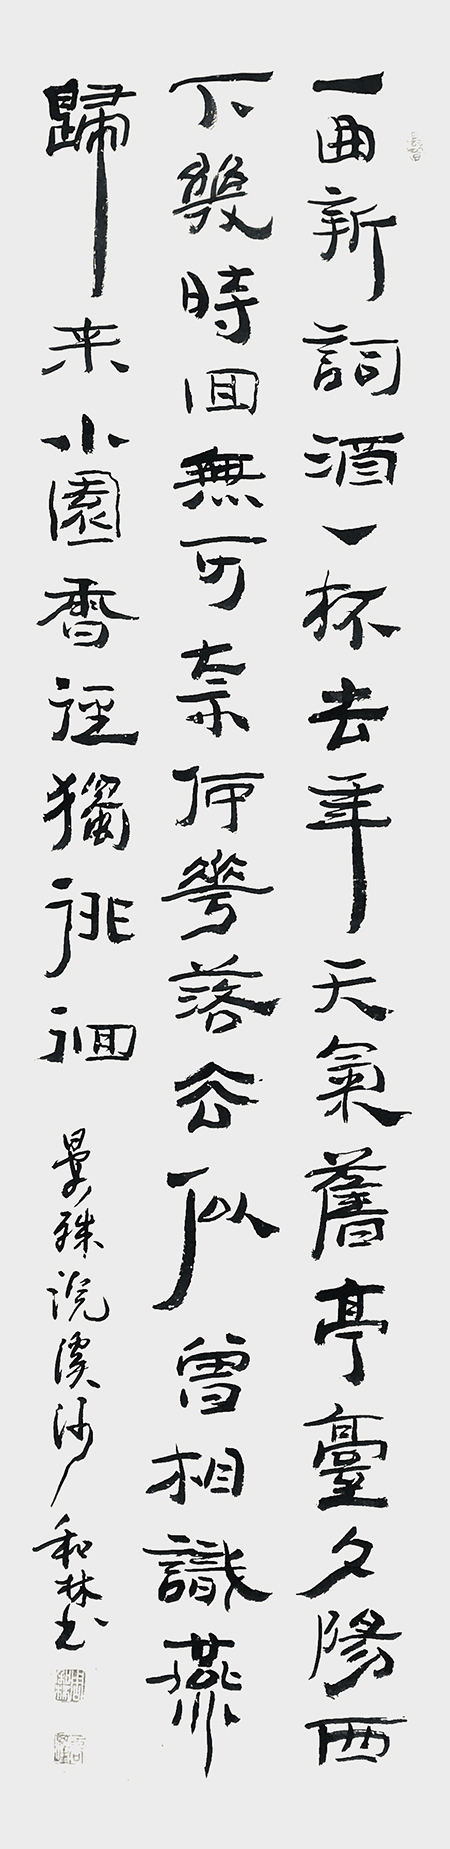 一曲新詞酒一杯去年天氣舊亭臺夕陽西
下幾時回無可奈何華落去似曾相識燕
歸来小園香徑獨徘徊
晏殊浣溪沙 和林书